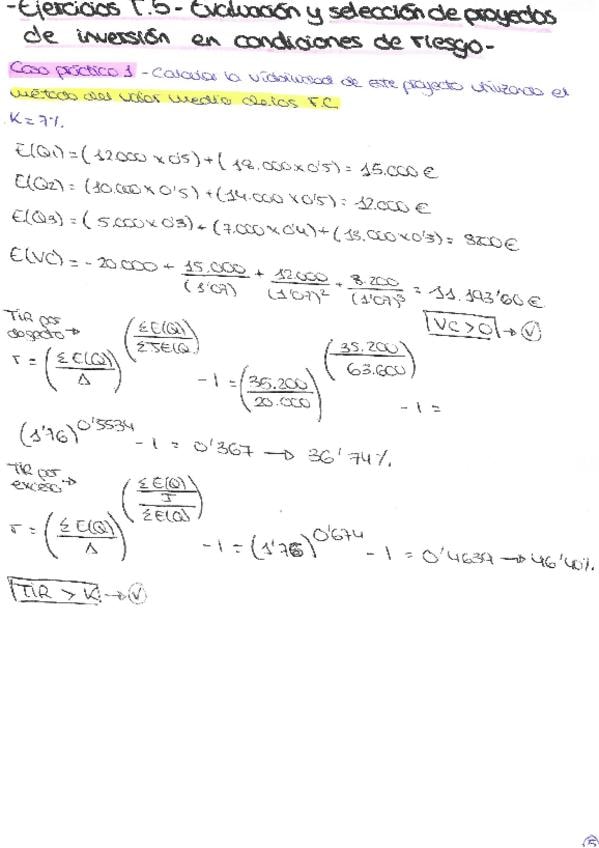 -Ejercicios T.5- Evaluación y selección de proyectos
de inversión en condiciones de riesgo-
Caso práctico 1 - Calcular la viabilidad de este proyecto utilizando el
método del valor medio de los F.C
K=7%
E(Q1)=(12000 x 0'5)+(18.000x0'5)= 15.000€
E(Q2)= (10.000x0'5)+(14.000x0'5)= 12.000€
E(Q3)=( 5.000x0'3)+(7.000x0'4)+(13.000x0'3)= 8200€
E(VC)= -20.000 + 15.000/(1'07) + 12.000/(1'07)² + 8.200/(1'07)³ = 11.193'60€
VC>0 → V
TIR por
defecto →
r = (ΣE(Q)/A)^(ΣE(Q)/ΣJE(Q)) -1 = (35.200/20.000)^(35.200/63.600) -1 =
(1'76)^0'5534 -1 = 0'367 → 36'74%.
TIR por
exceso →
r = (ΣE(Q)/A)^((ΣE(Q)/J)/ΣE(Q)) -1 = (1'76)^0'674 -1 = 0'4637 → 46'40%.
TIR > K → V
5